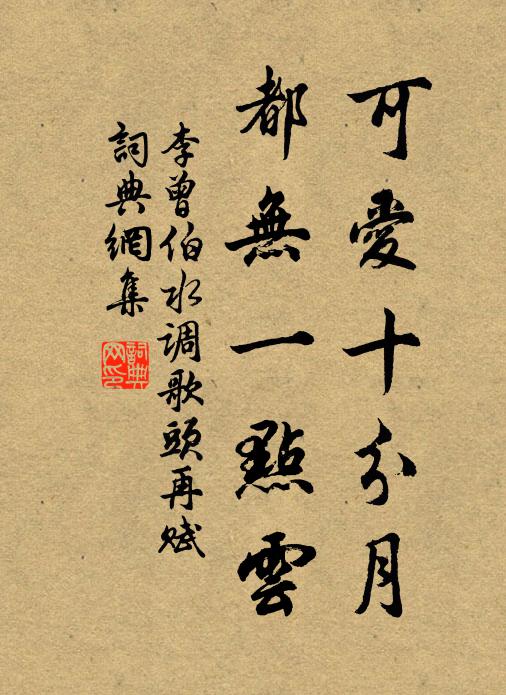 可愛十分月
都無一點雲
李曾伯水调歌頭再赋
詞典網集
詞典
网印